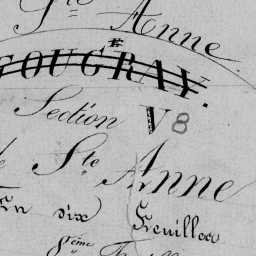 Ste Anne
OUGRAY.
Section V8
Ste Anne
En dix Feuilles
8ème